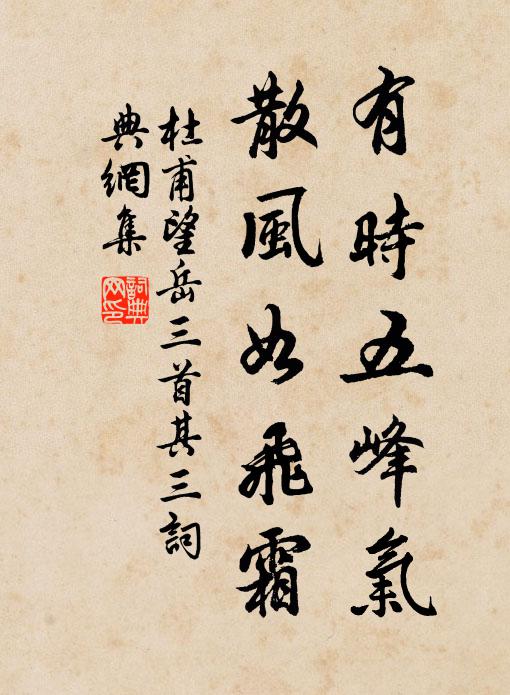 有時五峰氣
散風如飛霜
杜甫望岳三首其三詞
典網集
詞典
网印